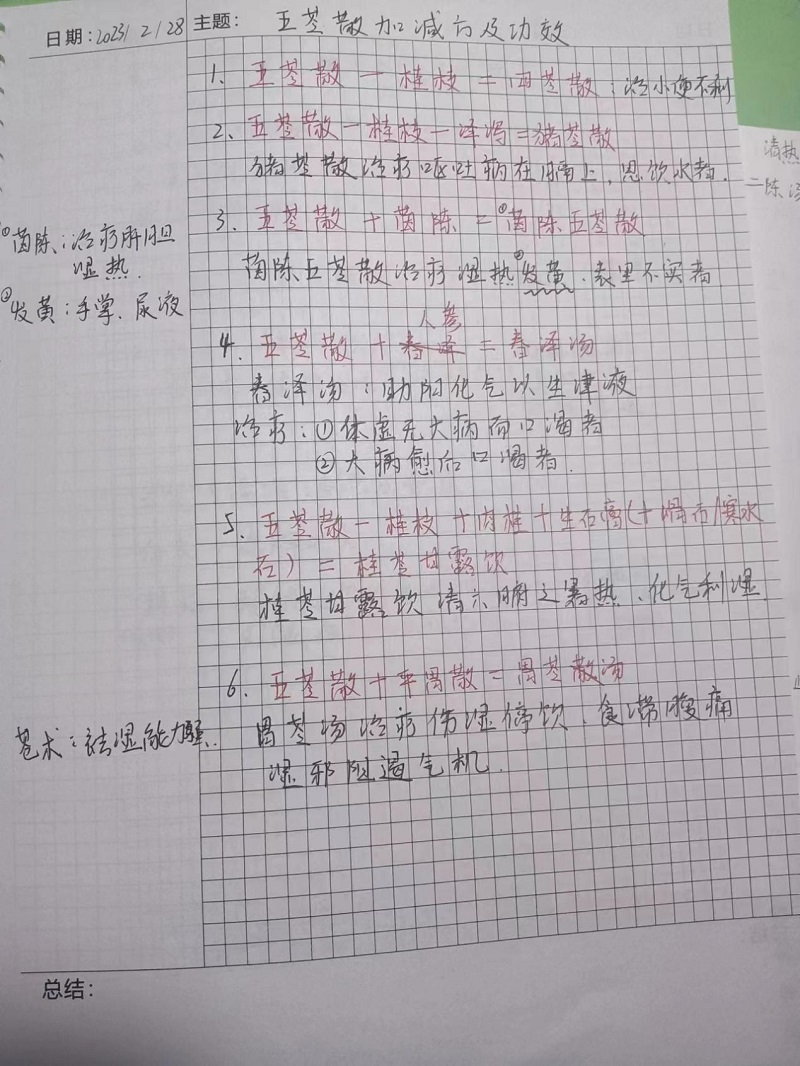 日期：2023/2/28 主题： 五苓散加减方及功效
1. 五苓散一桂枝=四苓散：治小便不利
2. 五苓散一桂枝一泽泻=猪苓散
猪苓散治疗呕吐病在膈上，思饮水者.
3. 五苓散+茵陈=①茵陈五苓散
茵陈五苓散治疗湿热②发黄.表里不实者
①茵陈：治疗肝胆
湿热.
②发黄：手掌、尿液
人参
4. 五苓散+春泽=春泽汤
春泽汤：助阳化气以生津液
治疗：①体虚无大病而口渴者
②大病愈后口渴者.
5. 五苓散一桂枝+肉桂+生石膏(+滑石/寒水
石)=桂苓甘露饮
桂苓甘露饮清六腑之暑热、化气利湿
6. 五苓散+平胃散=胃苓散汤
胃苓汤治疗伤湿停饮、食滞腹痛
湿邪阻遏气机.
苍术：祛湿能力强.
总结：
清热
二陈汤